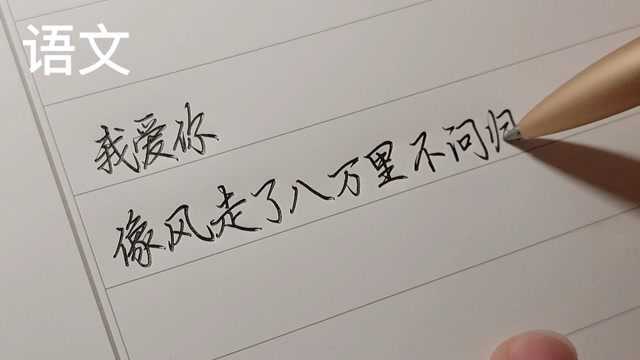 语文
我爱你
像风走了八万里不问归